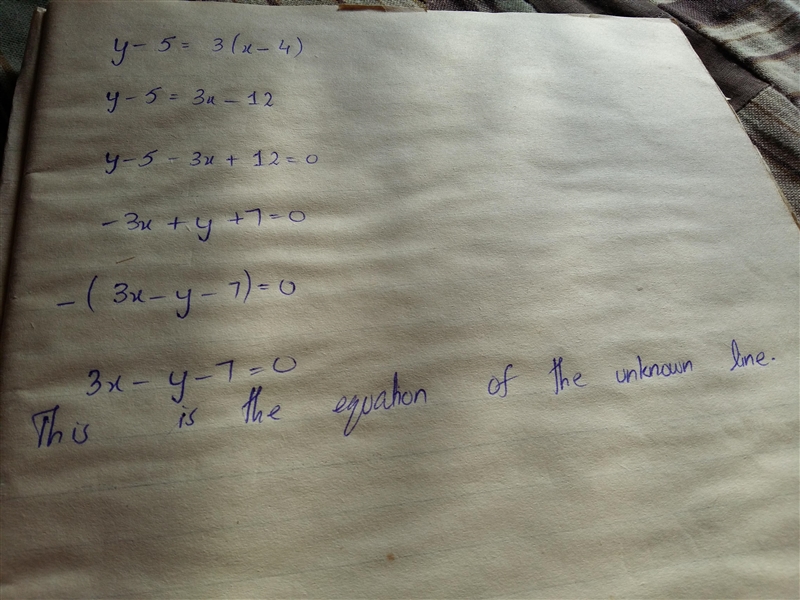 y - 5 = 3(x - 4)
y - 5 = 3x - 12
y - 5 - 3x + 12 = 0
- 3x + y + 7 = 0
- ( 3x - y - 7) = 0
3x - y - 7 = 0
This is the equation of the unknown line.